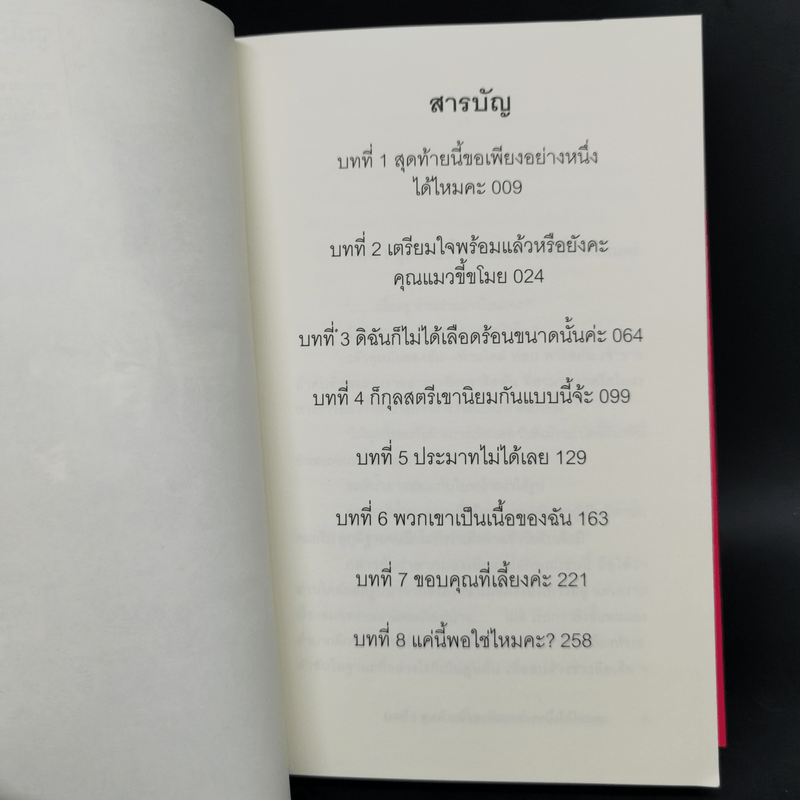 สารบัญ
บทที่ 1 สุดท้ายนี้ขอเพียงอย่างหนึ่ง
ได้ไหมคะ 009
บทที่ 2 เตรียมใจพร้อมแล้วหรือยังคะ
คุณแมวขี้ขโมย 024
บทที่ 3 ดิฉันก็ไม่ได้เลือดร้อนขนาดนั้นค่ะ 064
บทที่ 4 ก็กุลสตรีเขานิยมกันแบบนี้จ้ะ 099
บทที่ 5 ประมาทไม่ได้เลย 129
บทที่ 6 พวกเขาเป็นเนื้อของฉัน 163
บทที่ 7 ขอบคุณที่เลี้ยงค่ะ 221
บทที่ 8 แค่นี้พอใช่ไหมคะ? 258